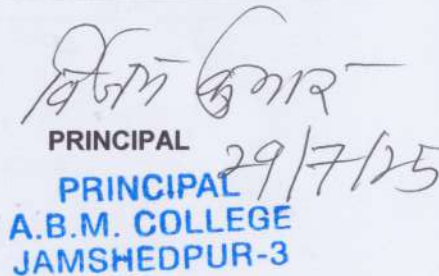 कुमार
PRINCIPAL
29/7/25
PRINCIPAL
A.B.M. COLLEGE
JAMSHEDPUR-3